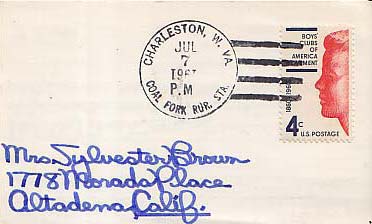 CHARLESTON, W. VA.
JUL
7
P.M
COAL FORK RUR. STA.
BOYS
CLUBS OF
AMERICA
MOVEMENT
1860 1960
4c
U.S. POSTAGE
Mrs. Sylvester Brown
1778 Morada Place
Altadena Calif.